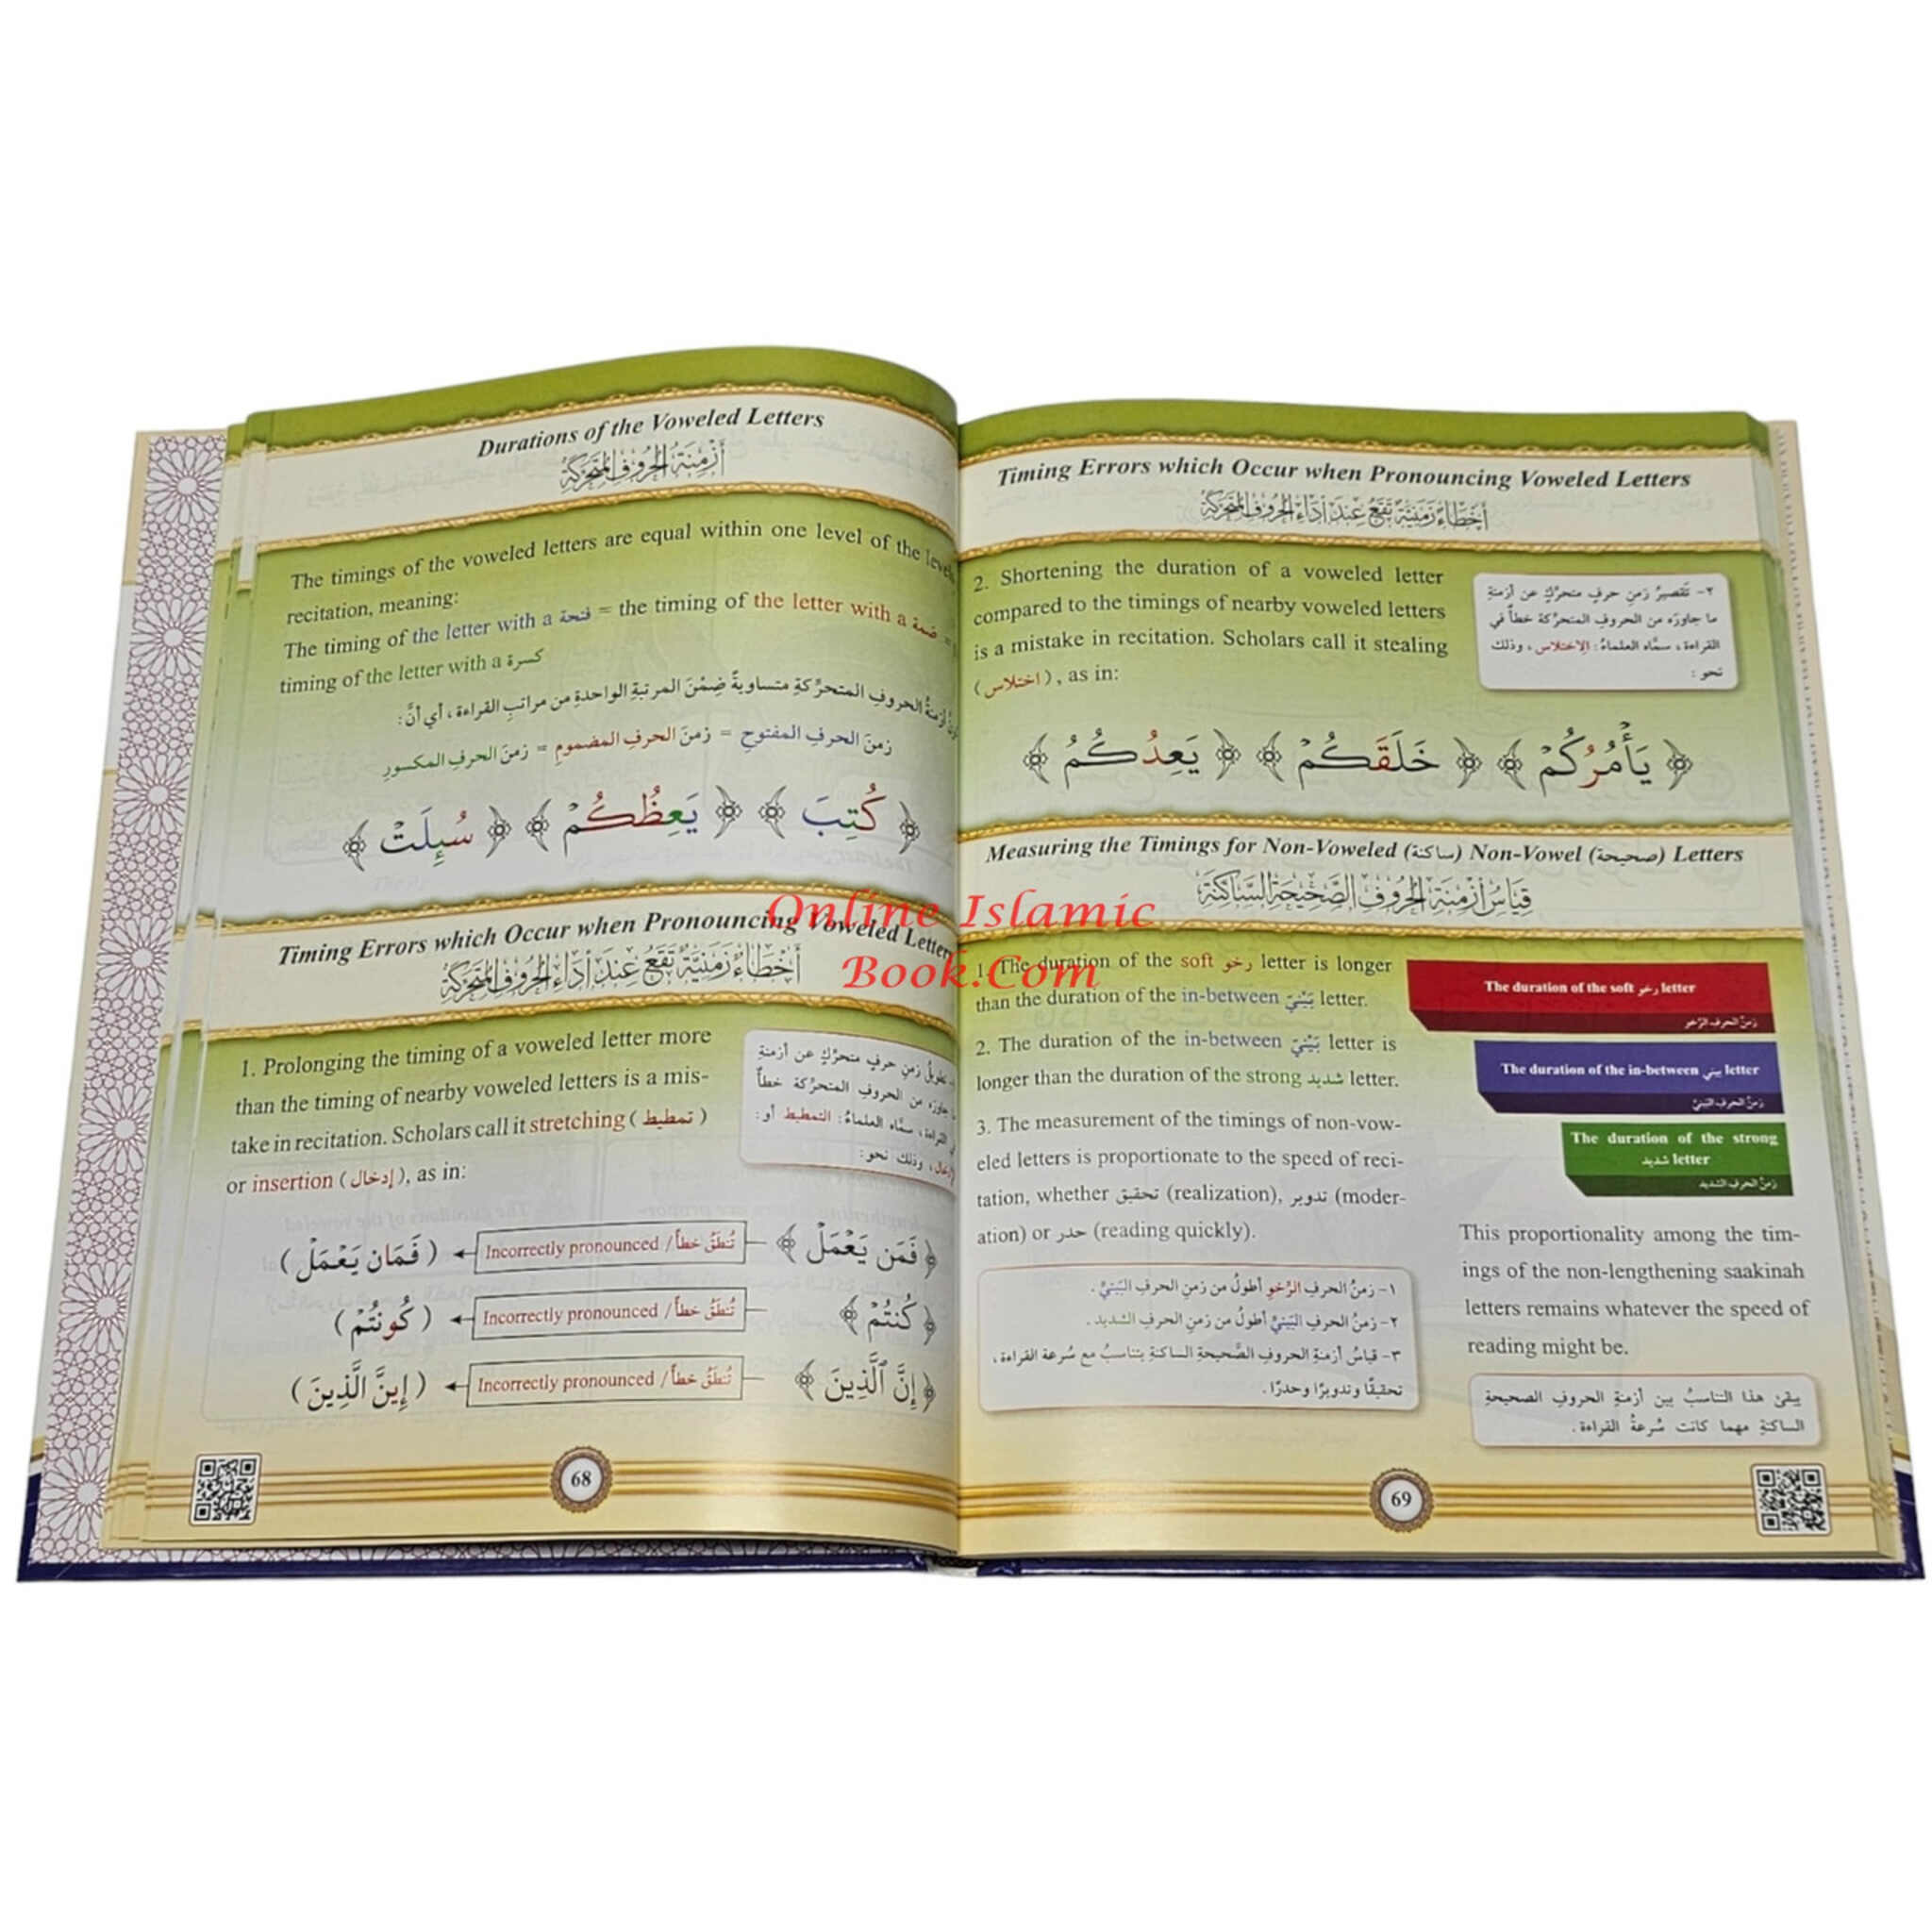 Durations of the Voweled Letters
أَزْمِنَةُ الحُرُوفِ المُتَحَرِّكَةِ
The timings of the voweled letters are equal within one level of the levels
recitation, meaning:
The timing of the letter with a فتحة = the timing of the letter with a ضمة =
timing of the letter with a كسرة
أزمنةُ الحروفِ المتحرِّكةِ متساويةٌ ضِمْنَ المرتبةِ الواحدةِ من مراتبِ القراءة، أي أنَّ:
زمنَ الحرفِ المفتوحِ = زمنَ الحرفِ المضمومِ = زمنَ الحرفِ المكسورِ
﴿ كُتِبَ ﴾ ﴿ يَعِظُكُمْ ﴾ ﴿ سُئِلَتْ ﴾
Timing Errors which Occur when Pronouncing Voweled Letters
أَخْطَاءٌ زَمَنِيَّةٌ تَقَعُ عِنْدَ أَدَاءِ الحُرُوفِ المُتَحَرِّكَةِ
1. Prolonging the timing of a voweled letter more
than the timing of nearby voweled letters is a mis-
take in recitation. Scholars call it stretching (تمطيط)
or insertion (إدخال), as in:
تطويلُ زمنِ حرفٍ متحرِّكٍ عن أزمنةِ
جاورَه من الحروفِ المتحرِّكة خطأٌ
القراءة، سمَّاه العلماءُ: التمطيط أو:
وذلك نحو:
﴿ فَمَن يَعْمَلْ ﴾ تُنطَقُ خطأً / Incorrectly pronounced ( فَمَان يَعْمَلْ )
﴿ كُنتُمْ ﴾ تُنطَقُ خطأً / Incorrectly pronounced ( كُونتُمْ )
﴿ إِنَّ ٱلَّذِينَ ﴾ تُنطَقُ خطأً / Incorrectly pronounced ( إِينَّ الَّذِينَ )
68
Timing Errors which Occur when Pronouncing Voweled Letters
أَخْطَاءٌ زَمَنِيَّةٌ تَقَعُ عِنْدَ أَدَاءِ الحُرُوفِ المُتَحَرِّكَةِ
2. Shortening the duration of a voweled letter
compared to the timings of nearby voweled letters
is a mistake in recitation. Scholars call it stealing
(اختلاس), as in:
٢- تَقصيرُ زمنِ حرفٍ متحرِّكٍ عن أزمنةِ
ما جاورَه من الحروفِ المتحرِّكة خطأٌ في
القراءة، سمَّاه العلماءُ: الاختلاس، وذلك
نحو:
﴿ يَأْمُرُكُمْ ﴾ ﴿ خَلَقَكُمْ ﴾ ﴿ يَعِدُكُمُ ﴾
Measuring the Timings for Non-Voweled (ساكنة) Non-Vowel (صحيحة) Letters
قِيَاسُ أَزْمِنَةِ الحُرُوفِ الصَّحِيحَةِ السَّاكِنَةِ
1. The duration of the soft رخو letter is longer
than the duration of the in-between بَيْنيّ letter.
2. The duration of the in-between بَيْنيّ letter is
longer than the duration of the strong شديد letter.
3. The measurement of the timings of non-vow-
eled letters is proportionate to the speed of reci-
tation, whether تحقيق (realization), تدوير (moder-
ation) or حدر (reading quickly).
١- زمنُ الحرفِ الرَّخوِ أطولُ من زمنِ الحرفِ البَينيِّ.
٢- زمنُ الحرفِ البَينيِّ أطولُ من زمنِ الحرفِ الشديد.
٣- قياسُ أزمنةِ الحروفِ الصَّحيحةِ الساكنةِ يتناسبُ مع سُرعة القراءة،
تحقيقًا وتدويرًا وحدرًا.
The duration of the soft رخو letter
زمنُ الحرف الرَّخو
The duration of the in-between بيني letter
زمنُ الحرف البَينيِّ
The duration of the strong
شديد letter
زمنُ الحرف الشديد
This proportionality among the tim-
ings of the non-lengthening saakinah
letters remains whatever the speed of
reading might be.
يبقى هذا التناسبُ بين أزمنةِ الحروفِ الصحيحةِ
الساكنةِ مهما كانت سُرعةُ القراءة.
69
Online Islamic
Book.Com